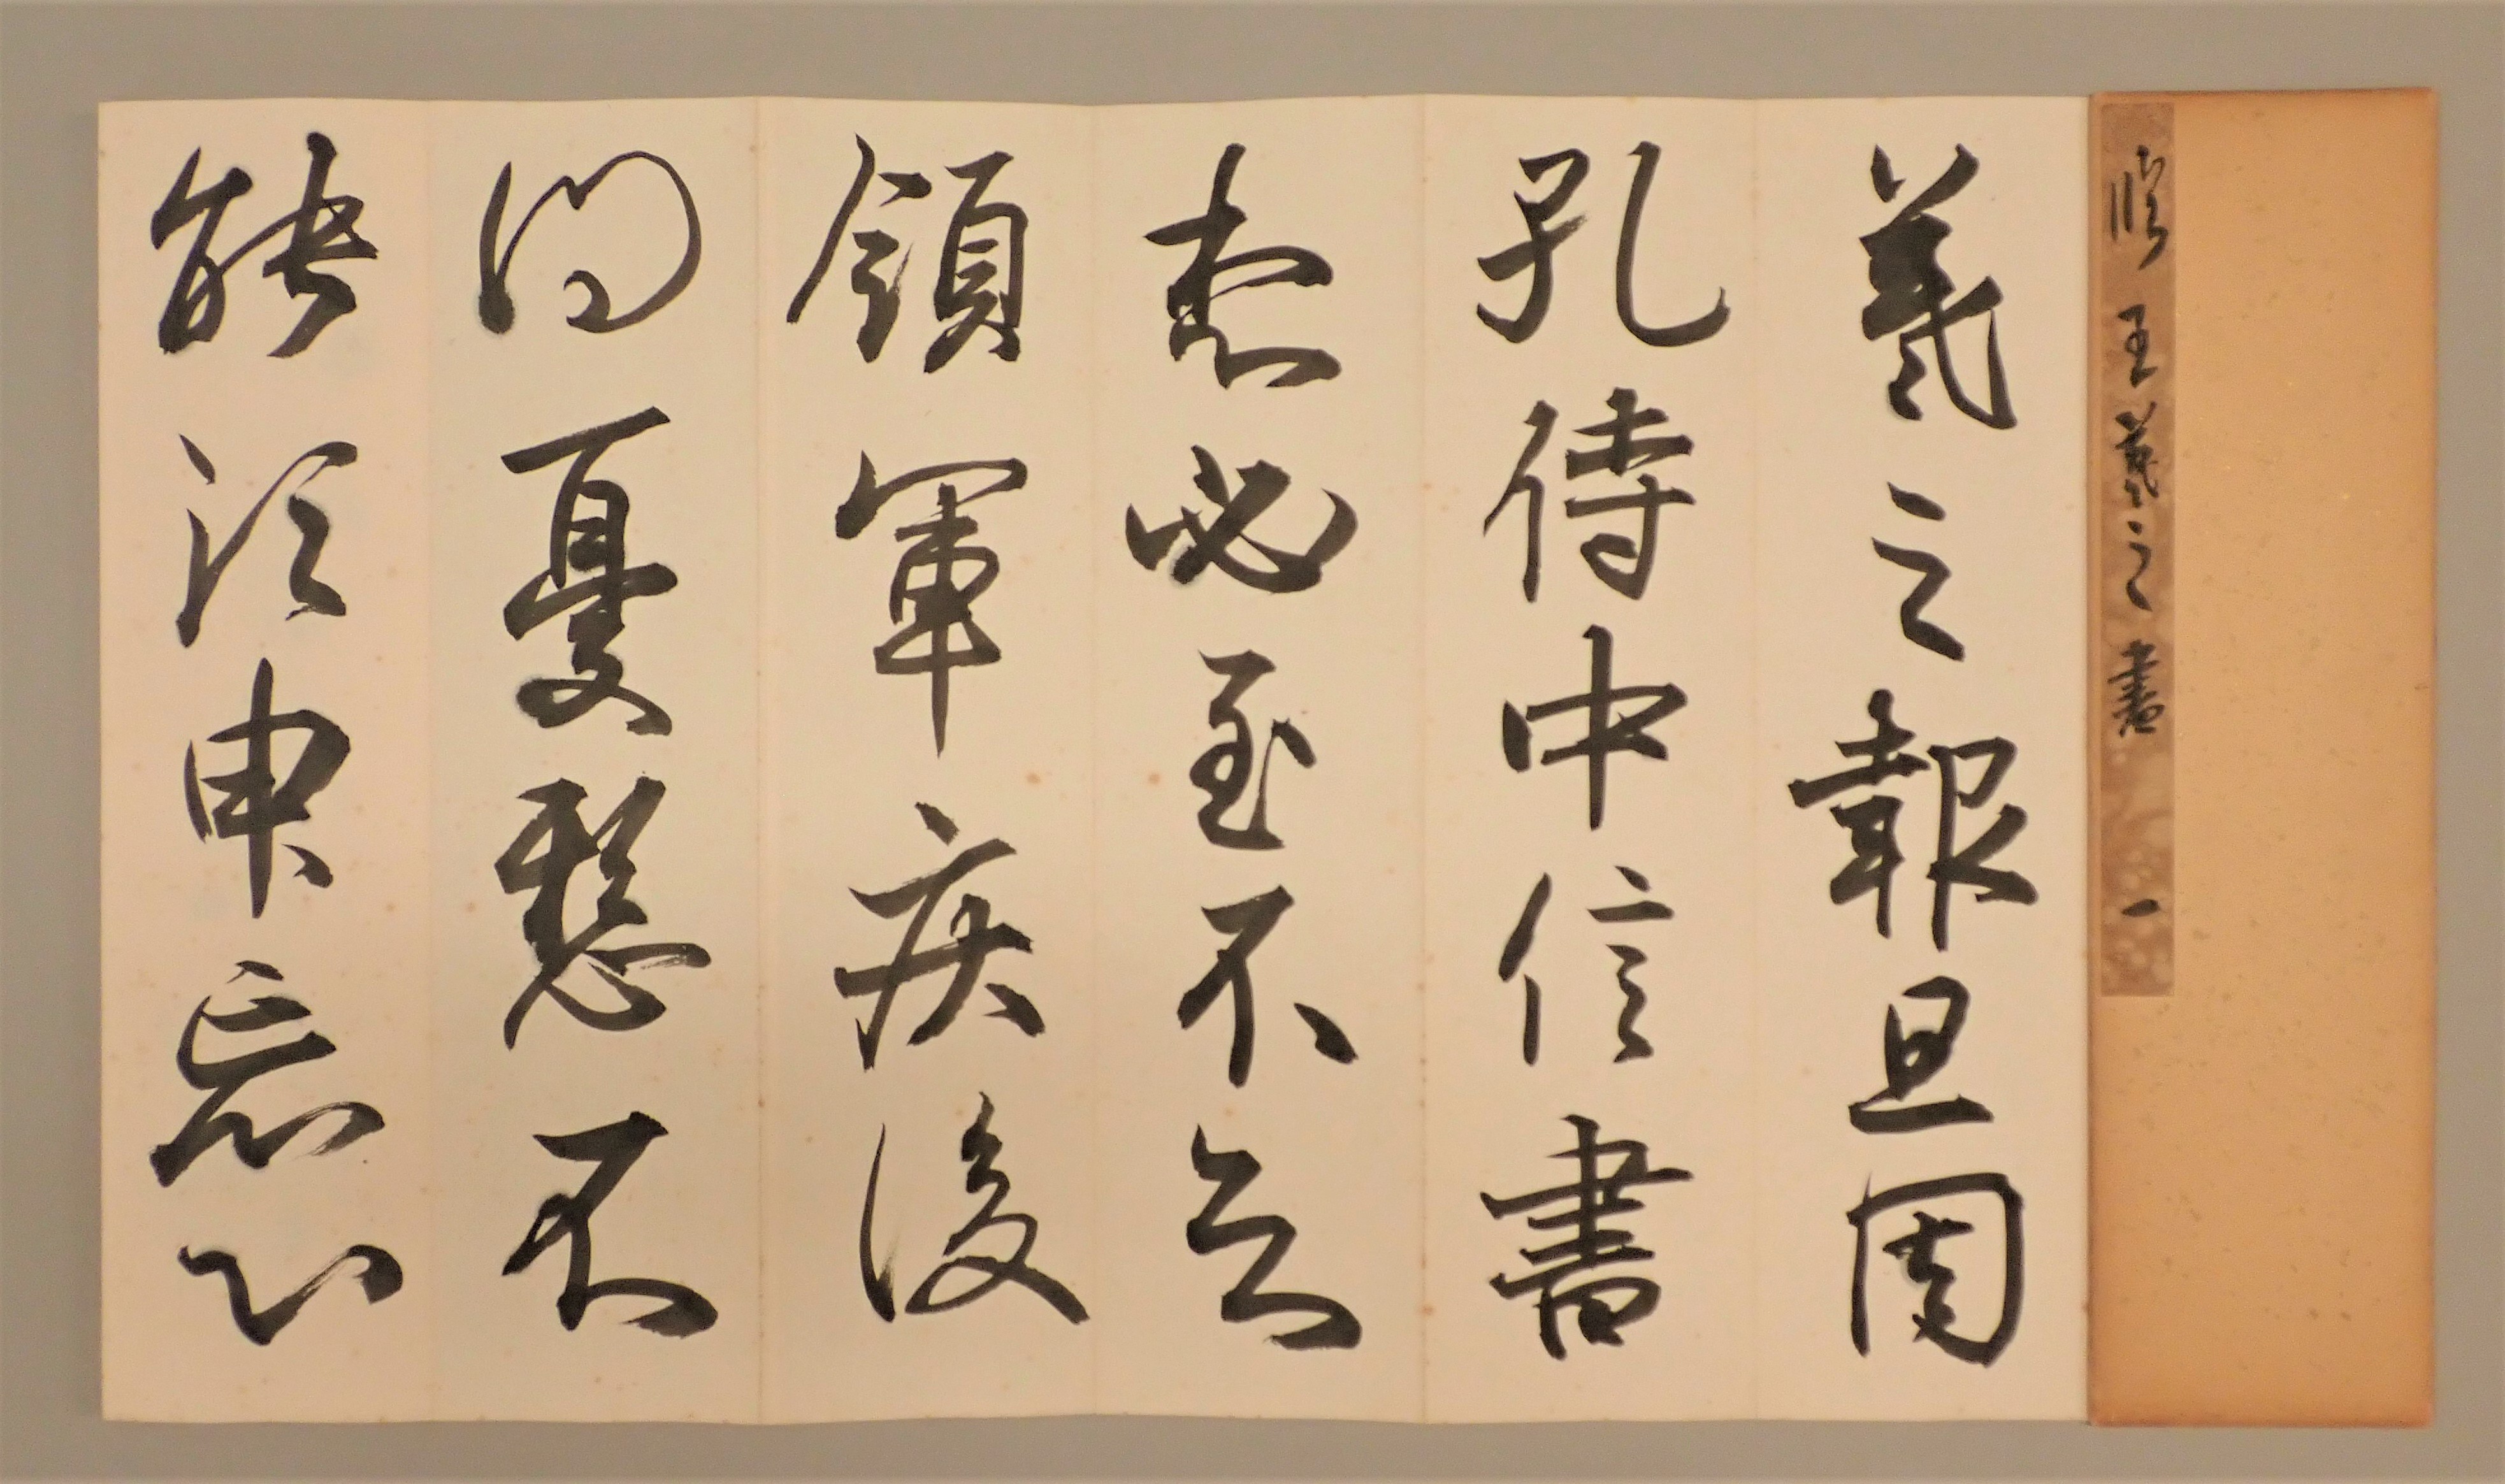 臨王羲之書 一
羲之報且因
孔侍中信書
想必至不知
領軍疾後
問憂懸不
能須臾忘心